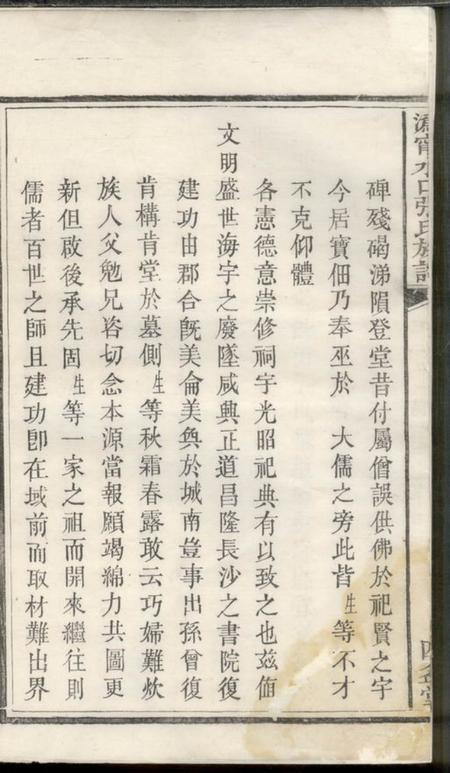 碑殘碣涕隕登堂昔付屬僧誤供佛於祀賢之宇
今居寶佃乃奉巫於 大儒之旁此皆生等不才
不克仰體
各憲德意崇修祠宇光昭祀典有以致之也茲值
文明盛世海宇之廢墜咸興正道昌隆長沙之書院復
建功由郡合旣美侖美奐於城南豈事出孫曾復
肯構肯堂於墓側生等秋霜春露敢云巧婦難炊
族人父勉兄咨切念本源當報願竭綿力共圖更
新但啟後承先固生等一家之祖而開來繼往則
儒者百世之師且建功卽在域前而取材難出界
水口張氏族譜